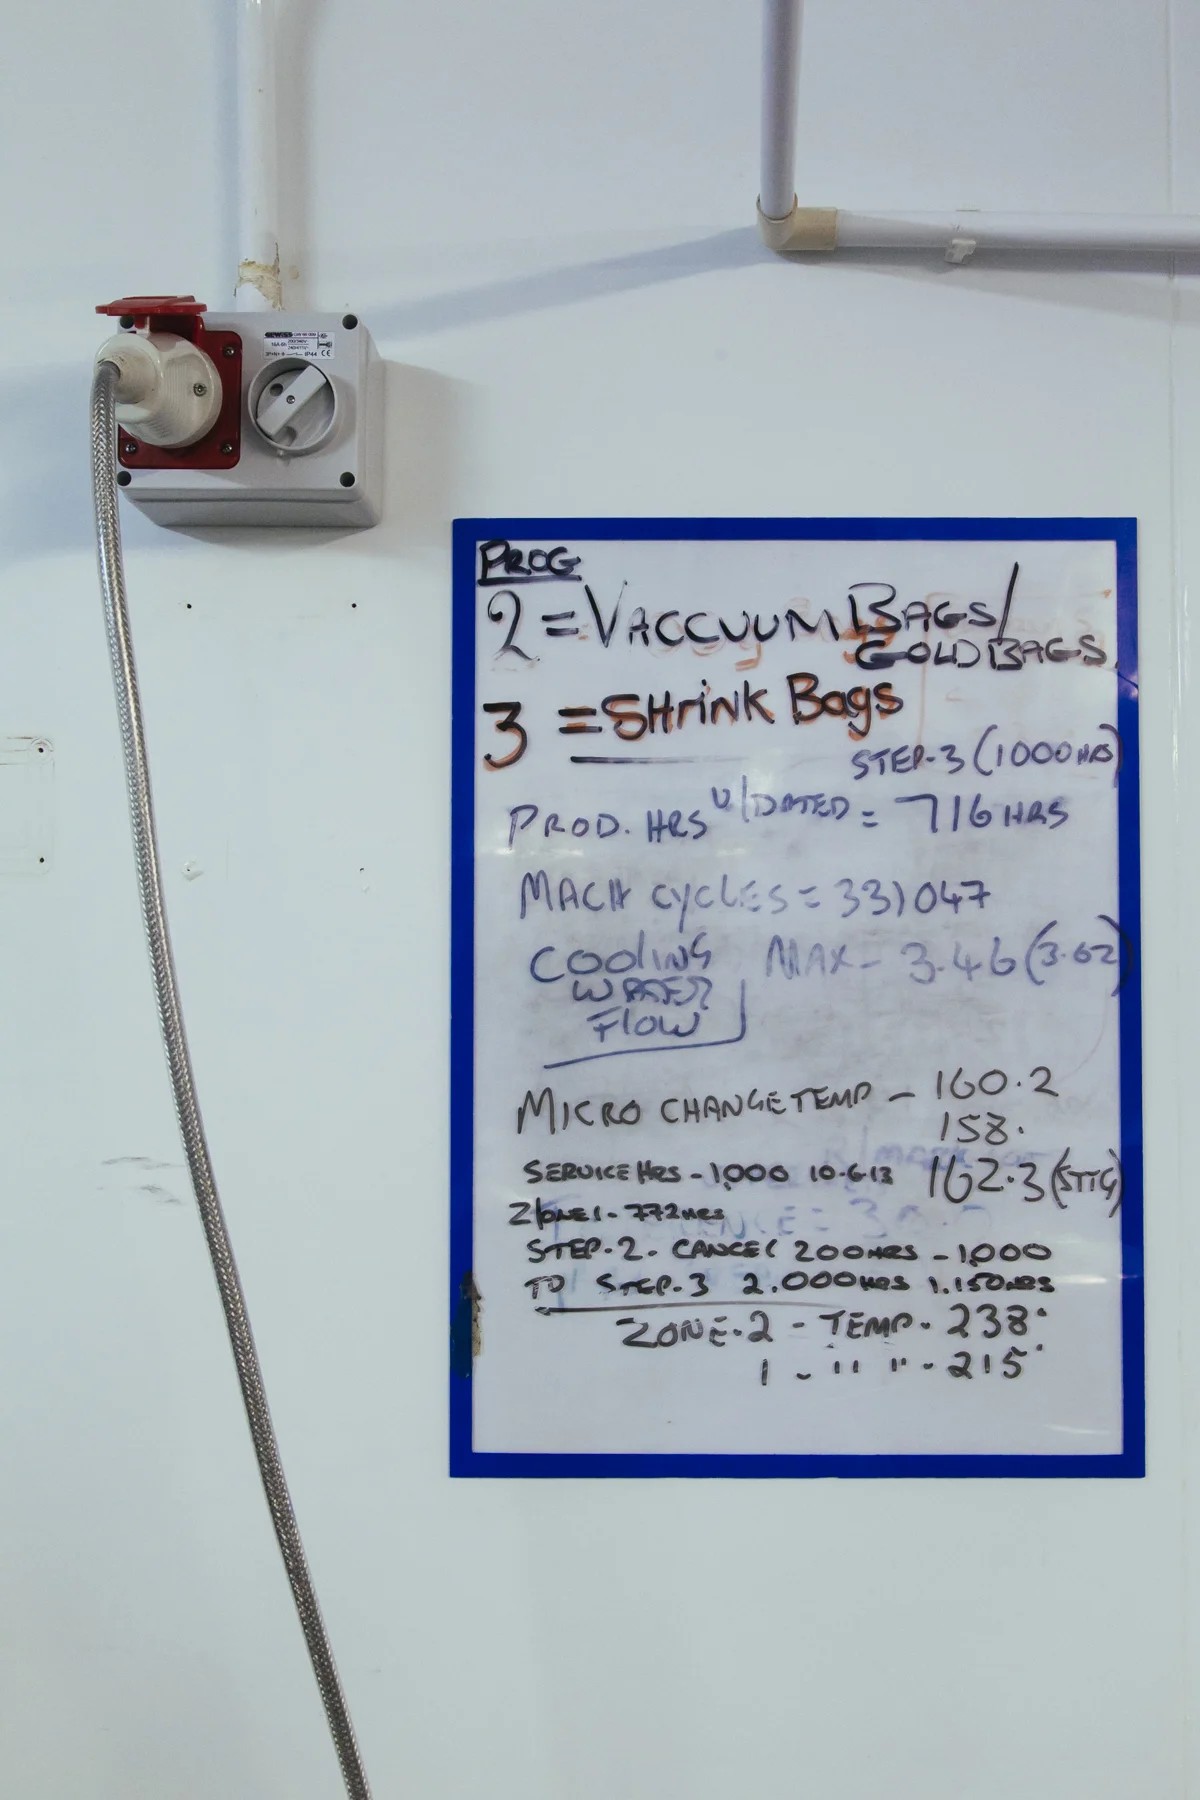 16A 6h
IP44 CE
PROG
2 = VACCUUM BAGS/
GOLD BAGS
3 = SHrink Bags
STEP-3 (1000 HRS)
PROD. HRS U/DATED = 716 HRS
MACH CYCLES = 331047
COOLING MAX - 3.46 (3.62)
WATER
FLOW
MICRO CHANGE TEMP - 160.2
158.
SERVICE HRS - 1,000 10-6-13 162.3 (STTG)
ZONE 1 - 772 HRS
STEP-2. CANCEL 200 HRS - 1,000
TO STEP-3 2.000 HRS 1.150 HRS
ZONE.2 - TEMP. 238°
1 - " " - 215°